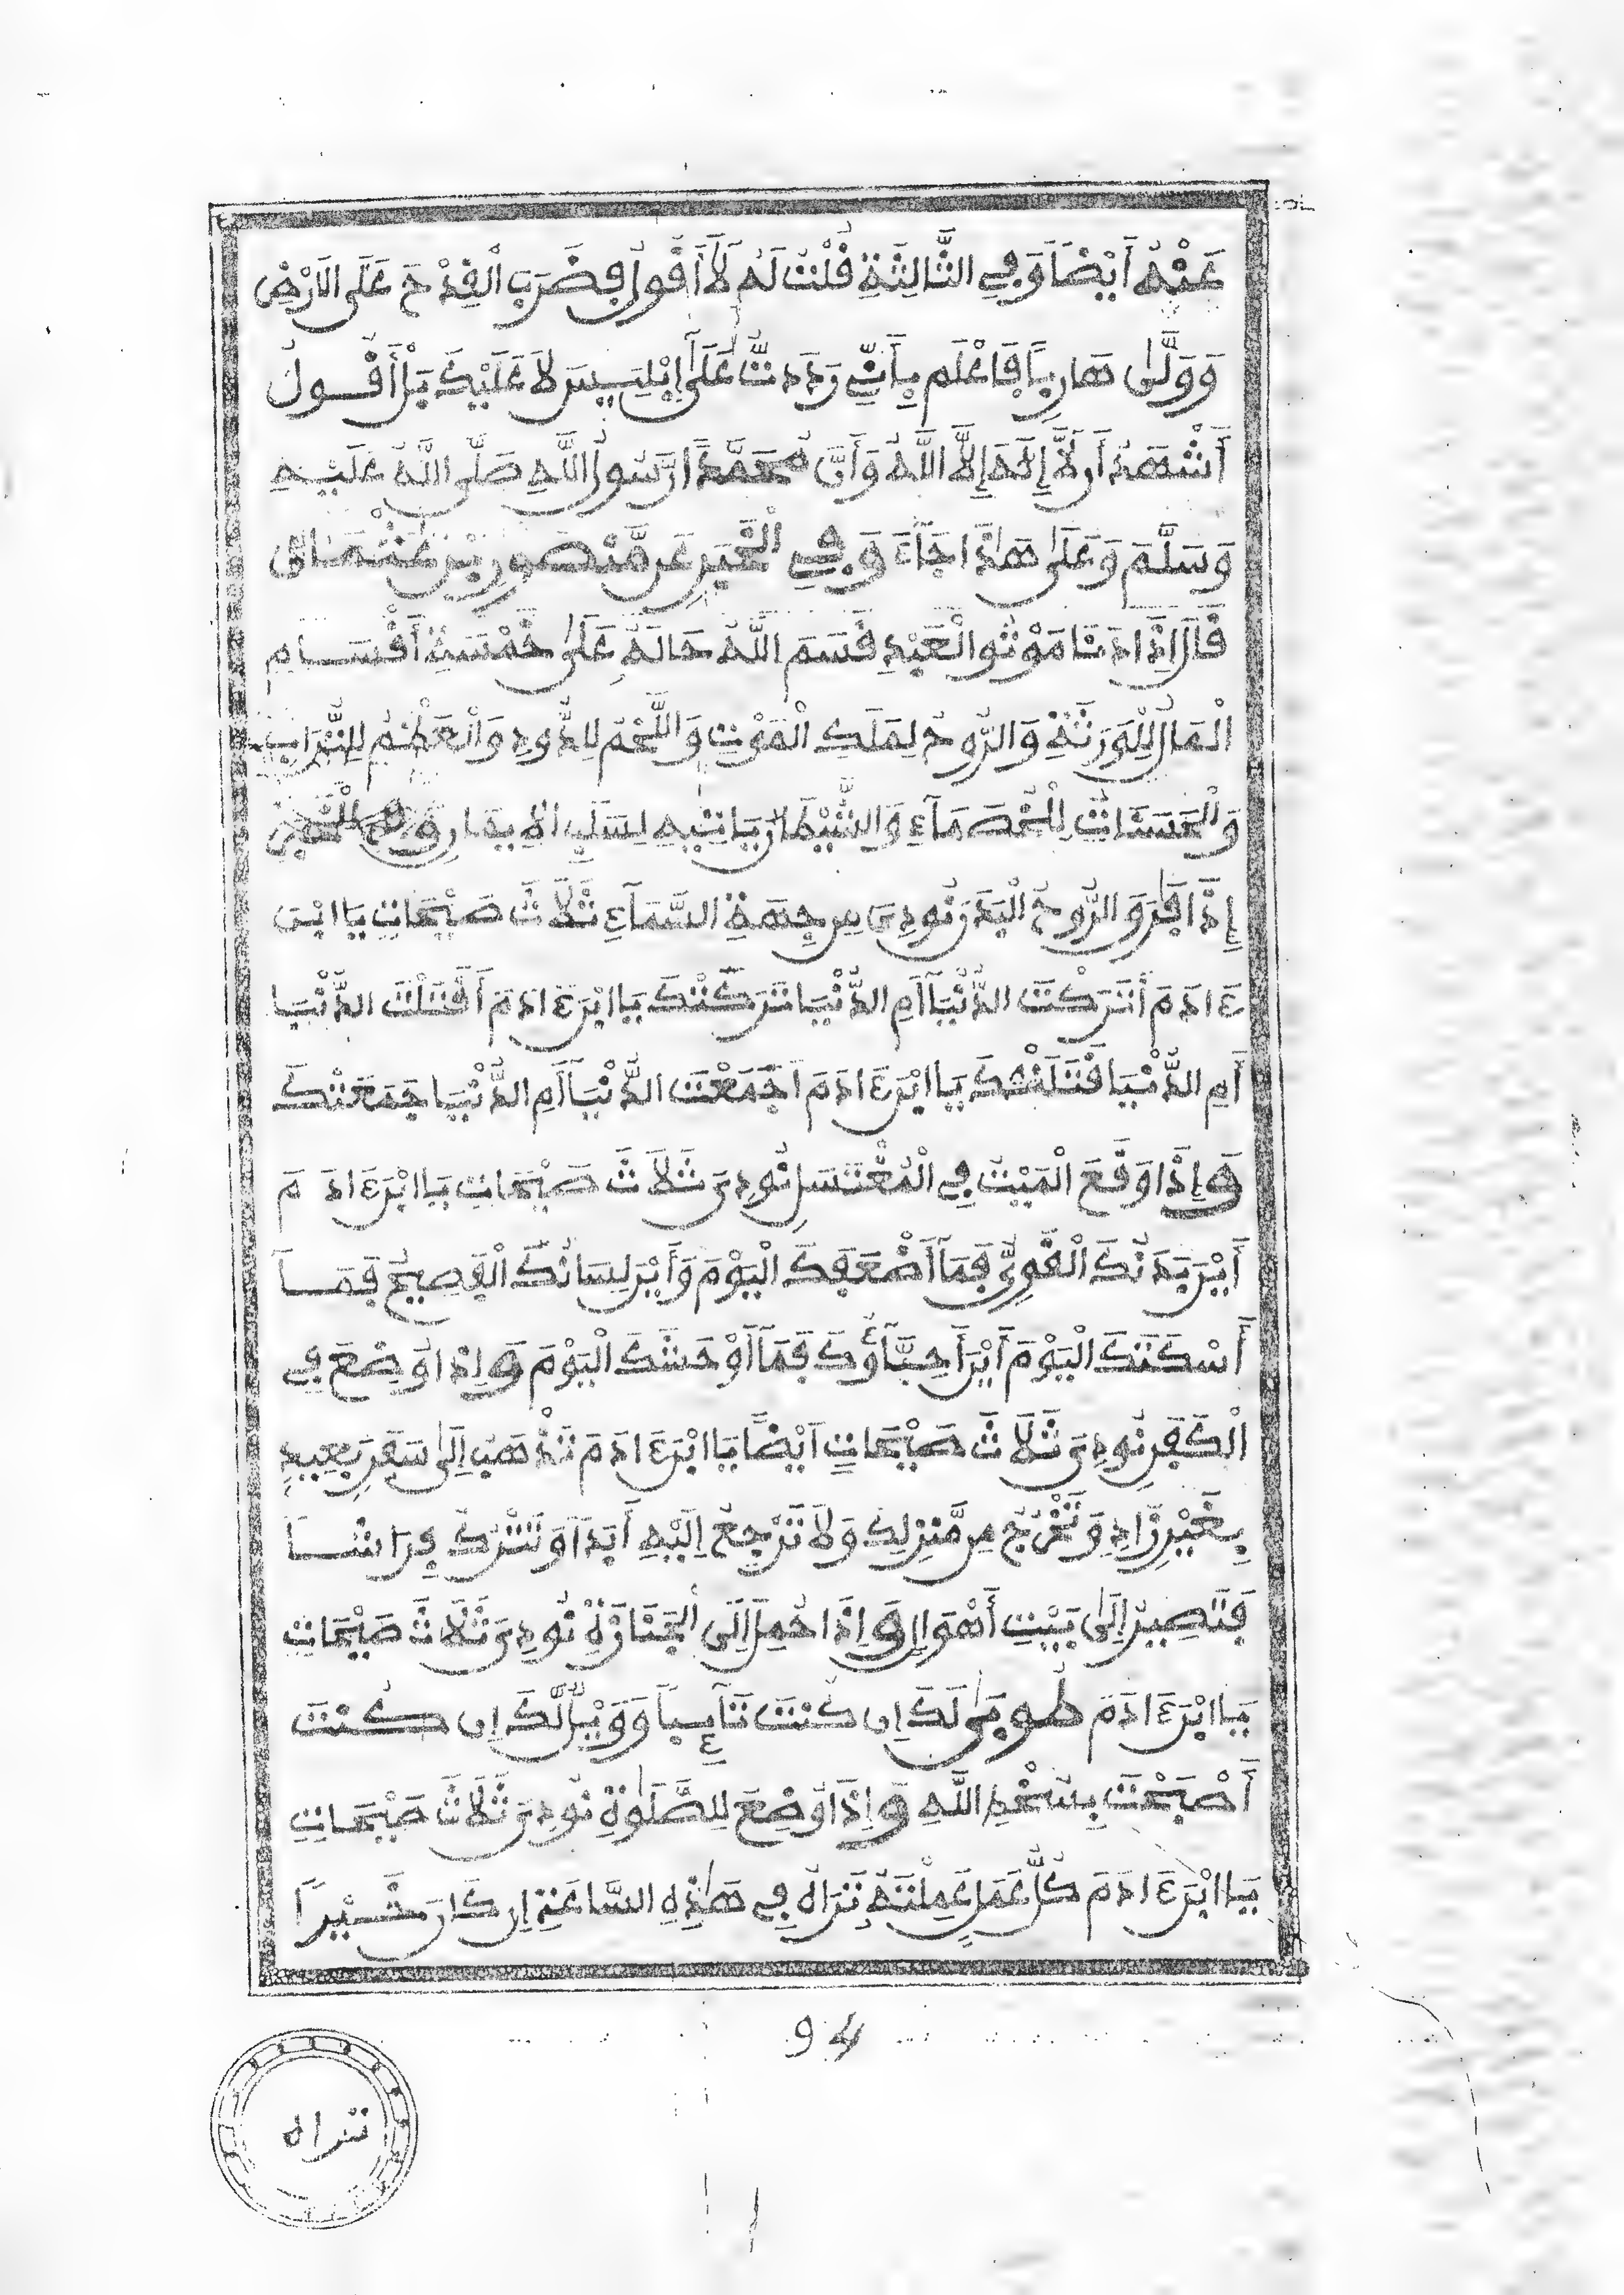 عَنْهُ أَيْضًا وَفِي الثَّالِثَةِ قُلْتُ لَهُ لَا أَقُولُ فَضَرَبَ الْقِدْحَ عَلَى الْاَرْضِ
وَوَلَّىٰ هَارِبًا فَاعْلَم بِأَنِّي رَدَدتُّ عَلَىٰ إِبْلِيسَ لَا عَلَيْكَ بَلْ أَقُولُ
أَشْهَدُ أَن لَّا إِلَٰهَ إِلَّا اللَّهُ وَأَنَّ مُحَمَّدًا رَّسُولُ اللَّهِ صَلَّى اللَّهُ عَلَيْهِ
وَسَلَّمَ وَعَلَىٰ هَٰذَا جَاءَ وَفِي الْخَبَرِ عَن مَّنْصُورِ بْنِ عُثْمَانَ
قَالَ إِذَا دَنَا مَوْتُ الْعَبْدِ قُسِمَ اللَّهُ حَالَهُ عَلَىٰ خَمْسَةِ أَقْسَامٍ
الْمَالُ لِلْوَرَثَةِ وَالرُّوحُ لِمَلَكِ الْمَوْتِ وَاللَّحْمُ لِلدُّودِ وَالْعَظْمُ لِلتُّرَابِ
وَالْحَسَنَاتُ لِلْخُصَمَاءِ وَالشَّيْطَانُ لِسَلَبِ الْإِيمَانِ
إِذَا فَارَقَ الرُّوحُ الْبَدَنَ نُودِيَ مِن جِهَةِ السَّمَآءِ ثَلَاثَ صَيْحَاتٍ يَا ابْنَ
ءَادَمَ أَتَرَكْتَ الدُّنْيَا أَمِ الدُّنْيَا تَرَكَتْكَ يَا ابْنَ ءَادَمَ أَقَتَلْتَ الدُّنْيَا
أَمِ الدُّنْيَا قَتَلَتْكَ يَا ابْنَ ءَادَمَ أَجَمَعْتَ الدُّنْيَا أَمِ الدُّنْيَا جَمَعَتْكَ
وَإِذَا وَقَعَ الْمَيِّتُ فِي الْمُغْتَسَلِ نُودِيَ ثَلَاثَ صَيْحَاتٍ يَا ابْنَ ءَادَمَ
أَيْنَ بَدَنُكَ الْقَوِيُّ فَمَا أَضْعَفَكَ الْيَوْمَ وَأَيْنَ لِسَانُكَ الْفَصِيحُ فَمَا
أَسْكَتَكَ الْيَوْمَ أَيْنَ أَحِبَّاؤُكَ فَمَا أَوْحَشَكَ الْيَوْمَ وَإِذَا وُضِعَ فِي
الْكَفَنِ نُودِيَ ثَلَاثَ صَيْحَاتٍ أَيْضًا يَا ابْنَ ءَادَمَ تَذْهَبُ إِلَىٰ سَفَرٍ بَعِيدٍ
بِغَيْرِ زَادٍ وَتَخْرُجُ مِن مَّنزِلِكَ وَلَا تَرْجِعُ إِلَيْهِ أَبَدًا وَتَتْرُكُ فِرَاشًا
فَتَصِيرُ إِلَىٰ بَيْتِ أَهْوَالٍ وَإِذَا حُمِلَ إِلَى الْجَنَازَةِ نُودِيَ ثَلَاثَ صَيْحَاتٍ
يَا ابْنَ ءَادَمَ طُوبَىٰ لَكَ إِن كُنْتَ تَآئِبًا وَوَيْلٌ لَّكَ إِن كُنْتَ
أَصْبَحْتَ بِسُخْطِ اللَّهِ وَإِذَا وُضِعَ لِلصَّلَوٰةِ نُودِيَ ثَلَاثَ صَيْحَاتٍ
يَا ابْنَ ءَادَمَ كُلُّ عَمَلٍ عَمِلْتَهُ تَرَاهُ فِي هَٰذِهِ السَّاعَةِ إِن كَانَ خَيْرًا
94
تراه